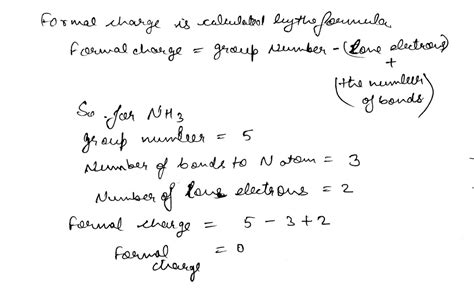 Formal charge is calculated by the formula
Formal charge = group number - (Lone electrons)
+
(the number of bonds)
So for NH3
group number = 5
Number of bonds to N atom = 3
Number of Lone electrons = 2
Formal charge = 5 - 3 + 2
Formal charge = 0